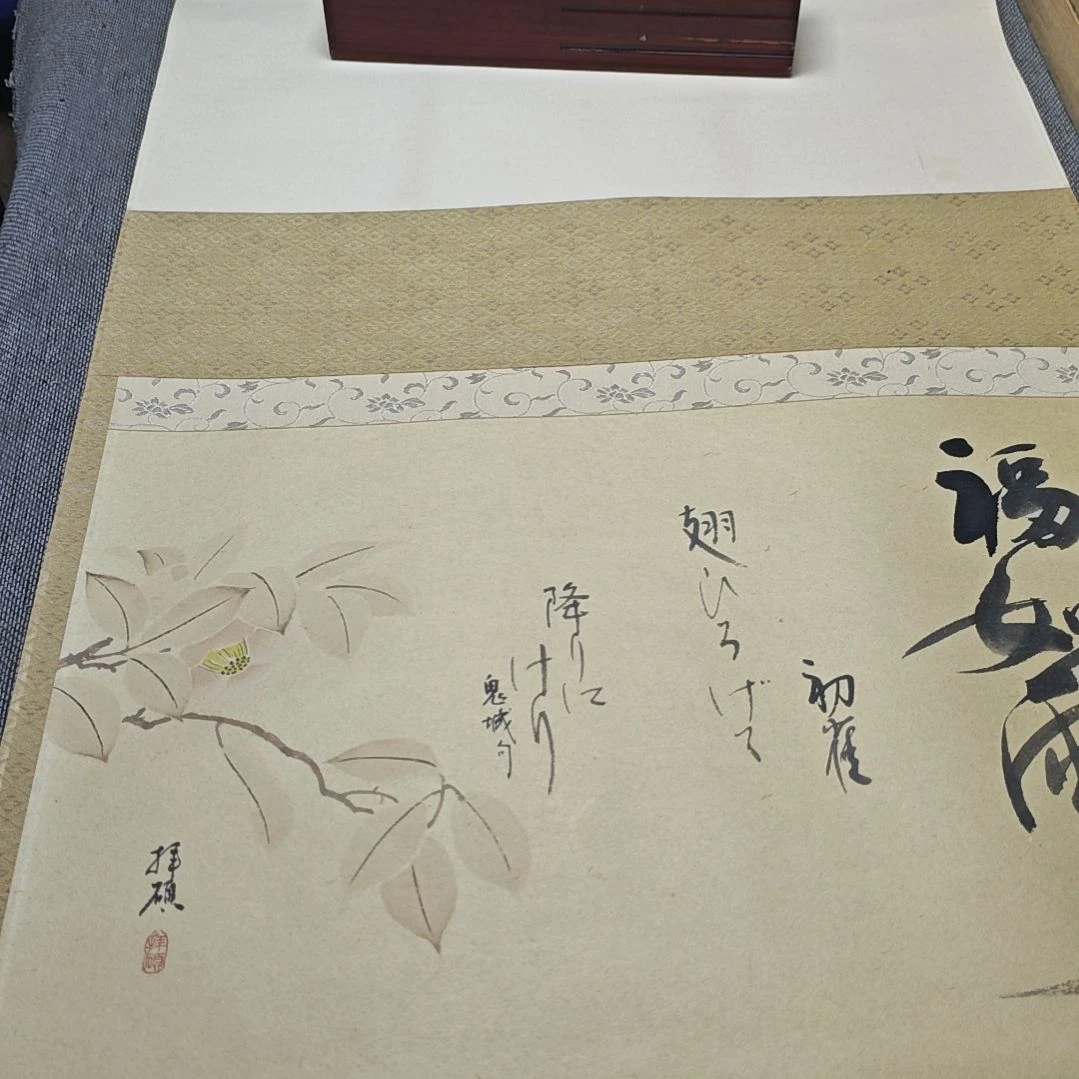 福如海
初雀
翅ひろげて
降りに
けり
鬼城句
拝碩